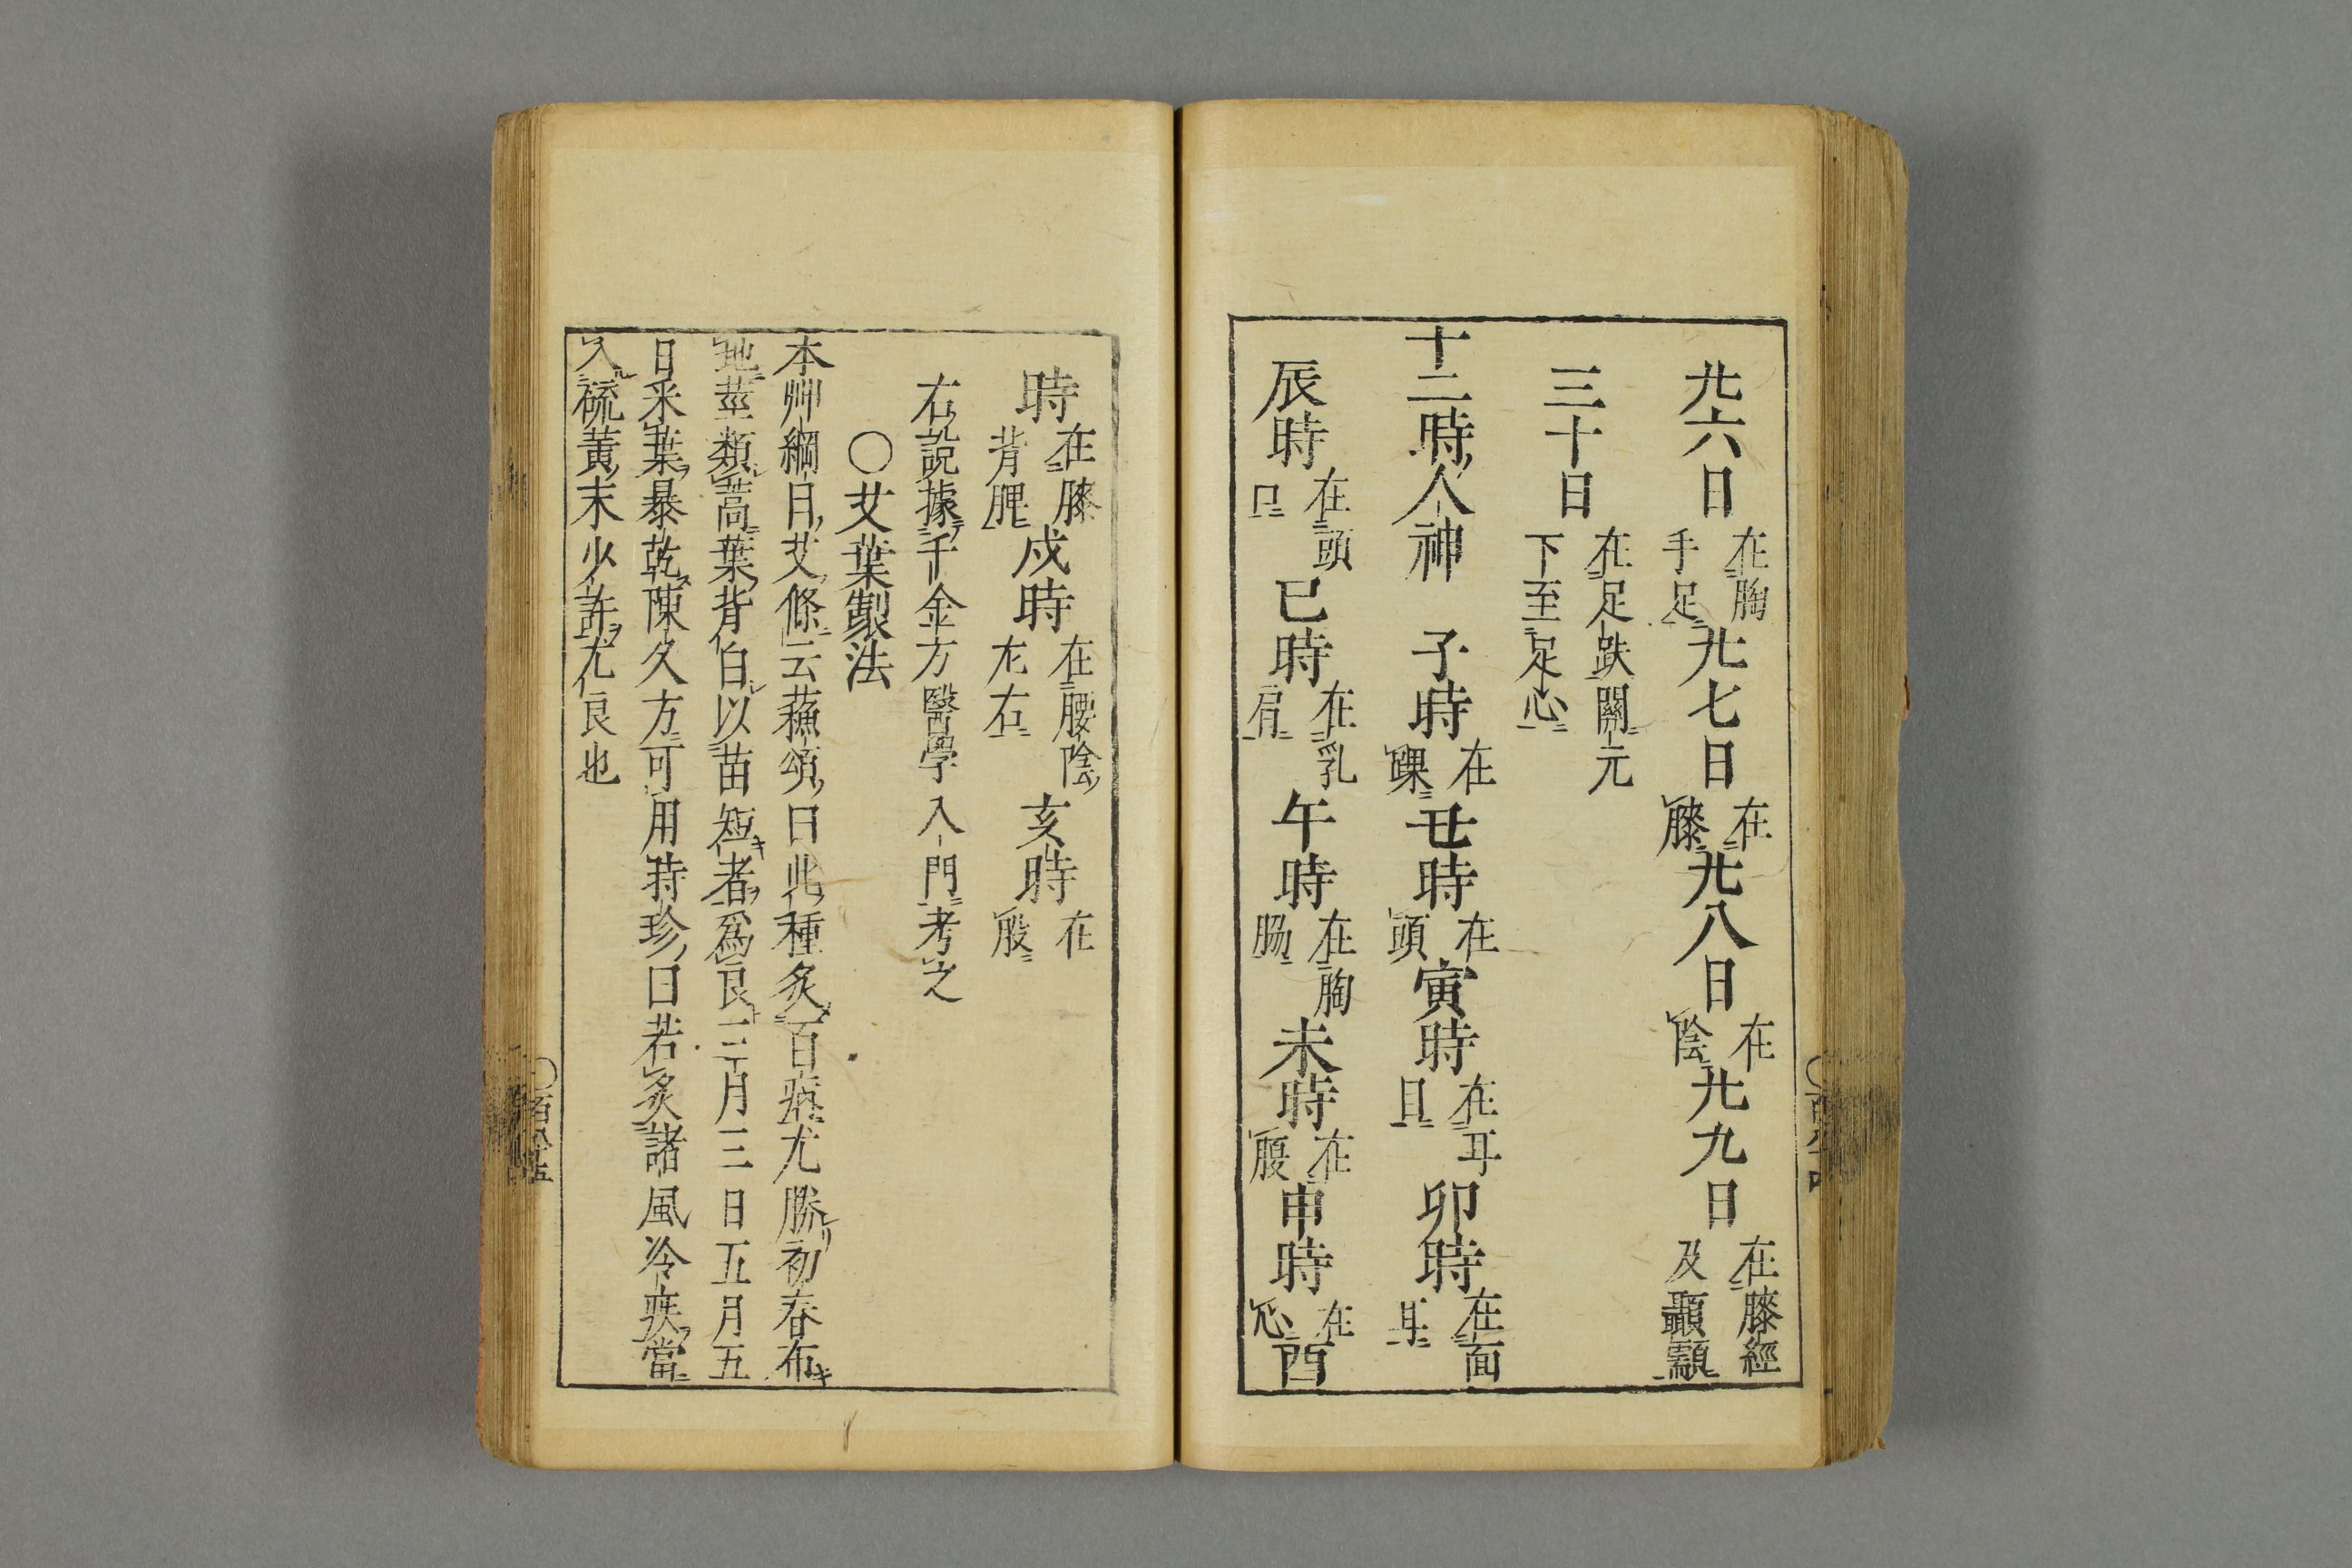 廿六日在胸手足廿七日在膝廿八日在陰廿九日在膝經及顳顬
三十日在足趺關元下至足心
十二時人神 子時在踝丑時在頭寅時在耳目卯時在面耳
辰時在頭口巳時在乳肩午時在胸脇未時在腹申時在心酉
時在膝背脾戌時在腰陰左右亥時在股
右說據千金方醫學入門考之
〇艾葉製法
本艸綱目艾條云蘓頌曰此種灸百病尤勝初春布
地莖類蒿葉背白以苗短者爲良三月三日五月五
日采葉暴乾陳久方可用時珍曰若灸諸風冷疾當
入硫黃末少許尤良也
〇百八十五